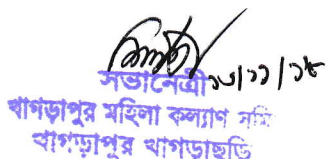 সভানেত্রী
খাগড়াপুর মহিলা কল্যাণ সমি
খাগড়াপুর খাগড়াছড়ি